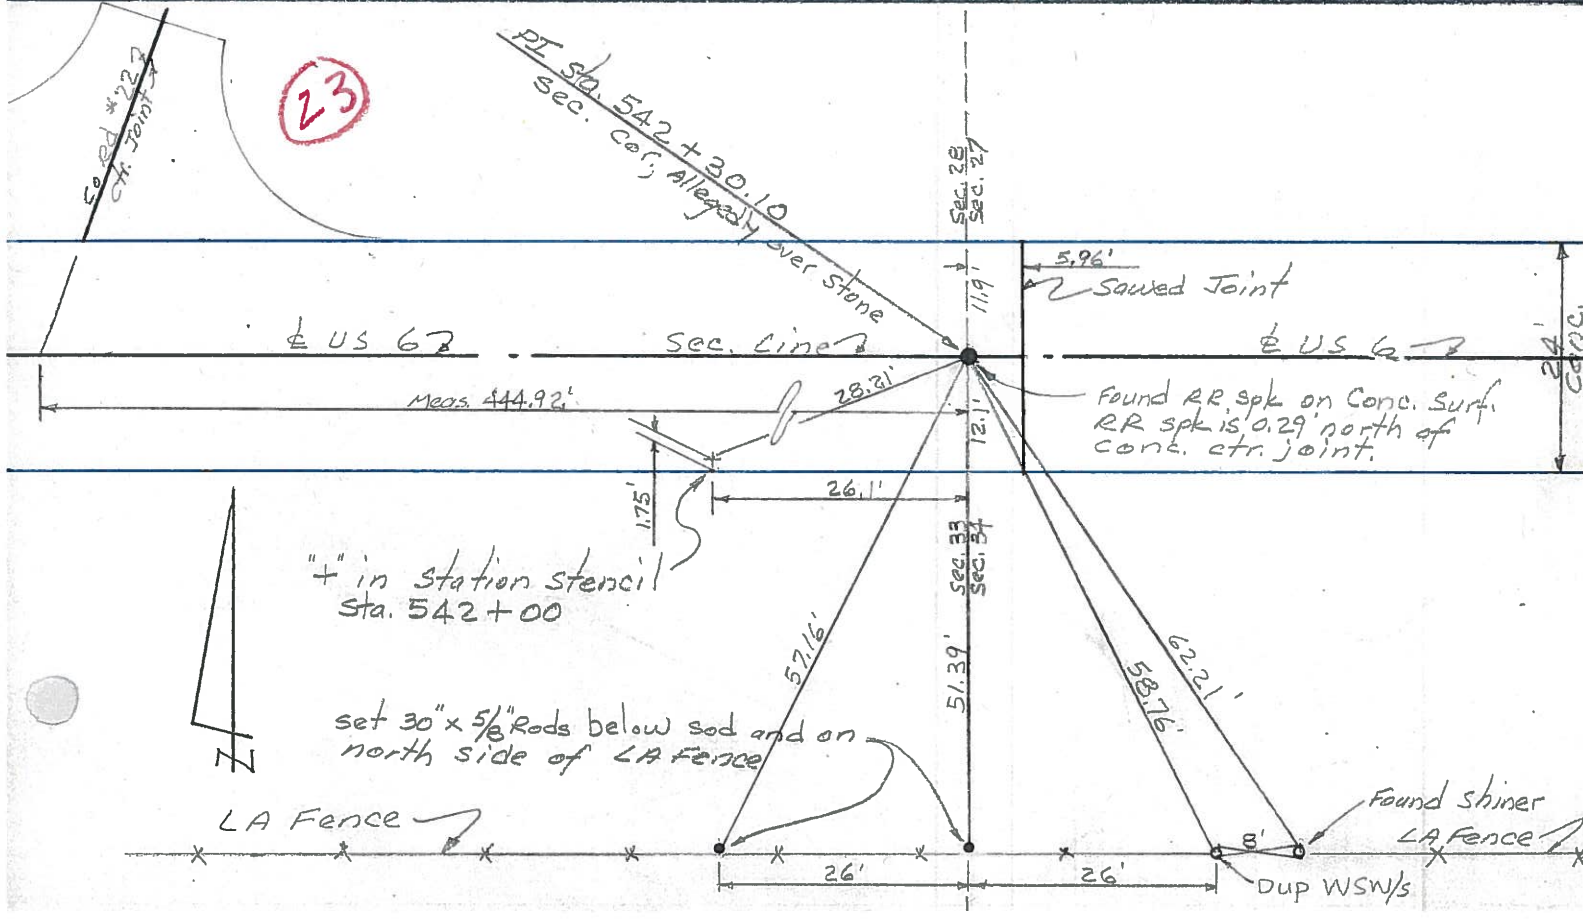 23
Co Rd #22
ctr. Joint
PI Sta. 542 + 30.10
Sec. Cor, Allegedly over Stone
Sec. 28
Sec. 27
5.96'
Sawed Joint
11.9'
℄ US 6
Sec. Line
℄ US 6
24'
Conc.
Meas. 444.92'
28.21'
12.1'
Found RR spk on Conc. Surf.
RR spk is 0.29' north of
conc. ctr. joint.
1.75'
26.1'
Sec. 33
Sec. 34
"+" in Station stencil
Sta. 542 + 00
57.16'
51.39'
58.76'
62.21'
set 30" x 5/8" Rods below sod and on
north side of LA Fence
N
LA Fence
Found Shiner
LA Fence
8'
26'
26'
Dup WSW/s